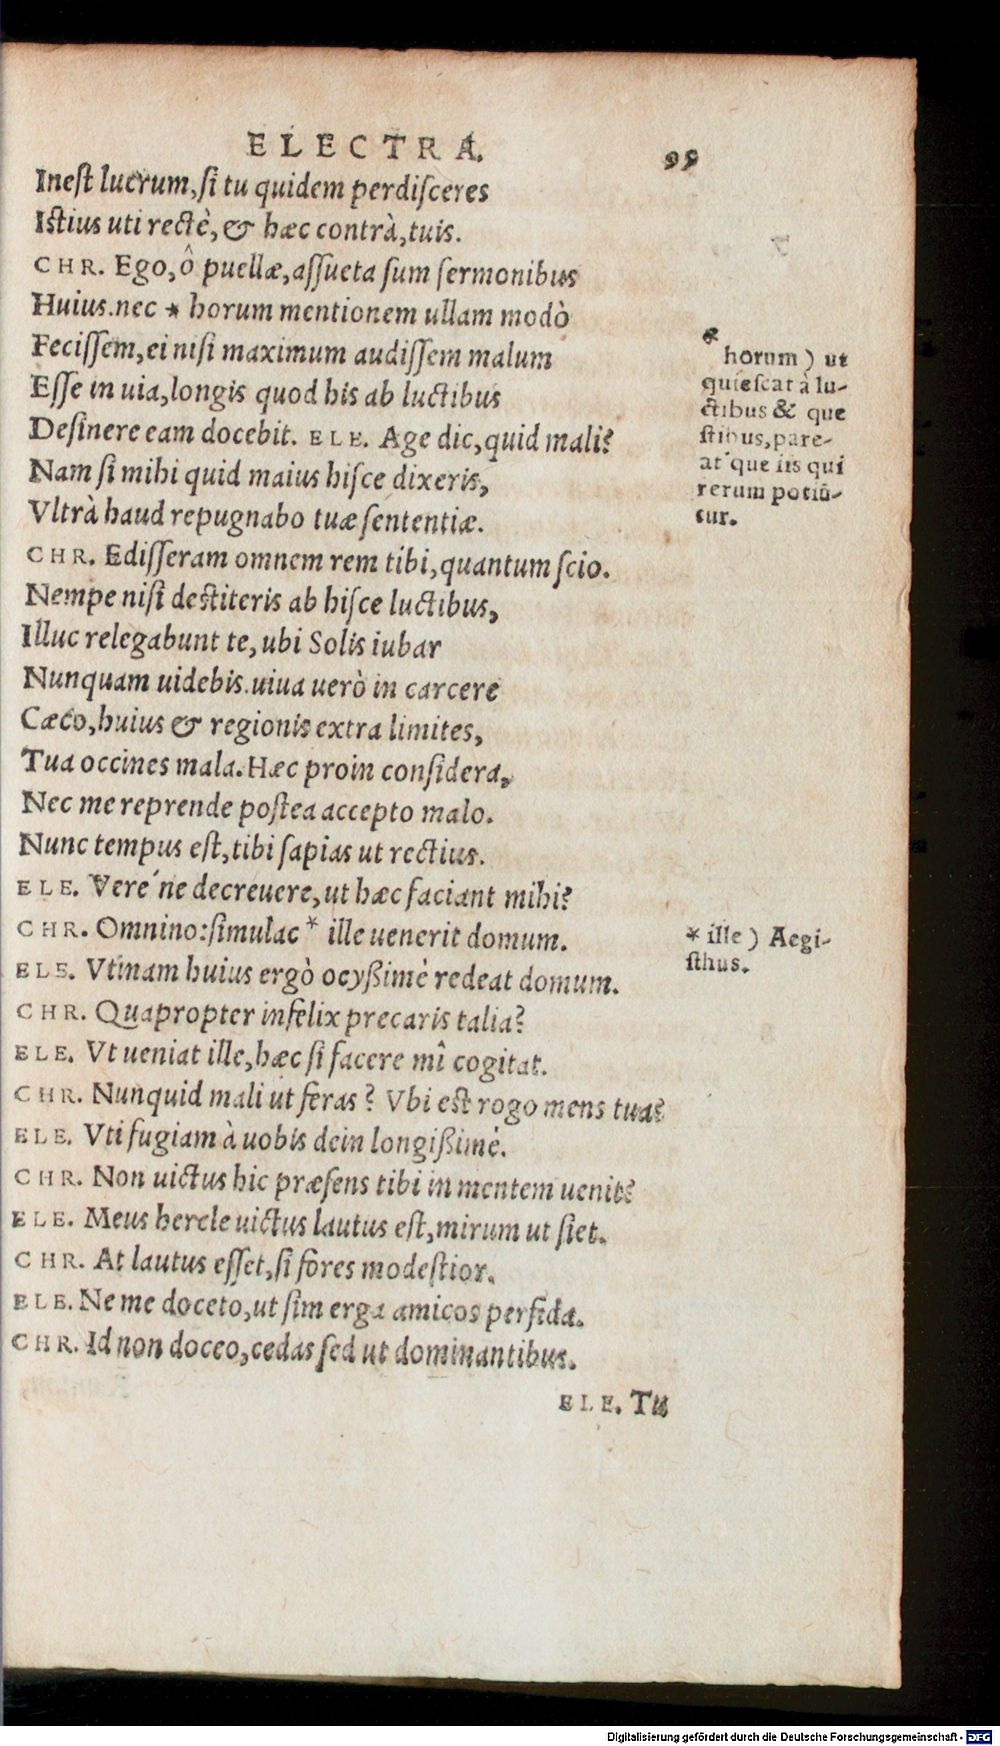 ELECTRA. 99
Inest lucrum, si tu quidem perdisceres
Istius uti rectè, & hæc contrà, tuis.
CHR. Ego, ô puellæ, assueta sum sermonibus
Huius. nec * horum mentionem ullam modò
Fecissem, ei nisi maximum audissem malum
Esse in uia, longis quod his ab luctibus
Desinere eam docebit. ELE. Age dic, quid mali?
Nam si mihi quid maius hisce dixeris,
Vltrà haud repugnabo tuæ sententiæ.
CHR. Edisseram omnem rem tibi, quantum scio.
Nempe nisi destiteris ab hisce luctibus,
Illuc relegabunt te, ubi Solis iubar
Nunquam uidebis. uiua uerò in carcere
Cæco, huius & regionis extra limites,
Tua occines mala. Hæc proin considera,
Nec me reprende postea accepto malo.
Nunc tempus est, tibi sapias ut rectius.
ELE. Vere´ne decreuere, ut hæc faciant mihi?
CHR. Omnino: simulac * ille uenerit domum.
ELE. Vtinam huius ergò ocyßimè redeat domum.
CHR. Quapropter infelix precaris talia?
ELE. Vt ueniat ille, hæc si facere mî cogitat.
CHR. Nunquid mali ut feras? Vbi est rogo mens tua?
ELE. Vti fugiam à uobis dein longißimè.
CHR. Non uictus hic præsens tibi in mentem uenit?
ELE. Meus hercle uictus lautus est, mirum ut siet.
CHR. At lautus esset, si fores modestior.
ELE. Ne me doceto, ut sim erga amicos perfida.
CHR. Id non doceo, cedas sed ut dominantibus.
ELE. Tu
*
horum) ut
quiescat à lu-
ctibus & que
stibus, pare-
at´que iis qui
rerum potiũ-
tur.
* ille) Aegi-
sthus.
Digitalisierung gefördert durch die Deutsche Forschungsgemeinschaft - DFG